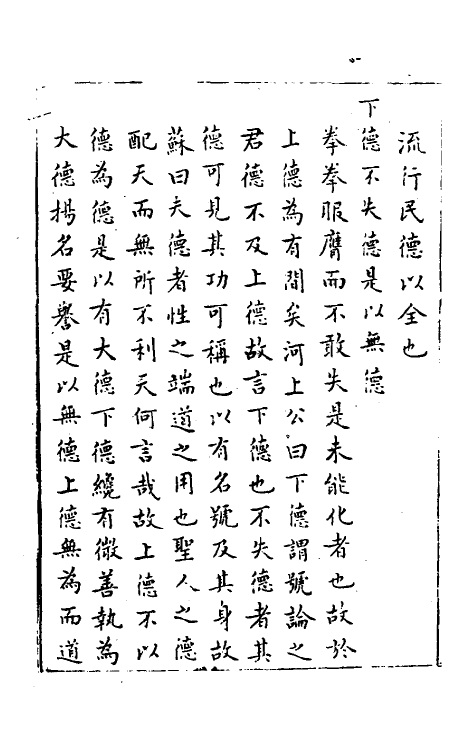 流行民德以全也
下德不失德是以無德
拳拳服膺而不敢失是未能化者也故於
上德為有間矣河上公曰下德謂號諡之
君德不及上德故言下德也不失德者其
德可見其功可稱也以有名號及其身故
蘇曰夫德者性之端道之用也聖人之德
配天而無所不利天何言哉故上德不以
德為德是以有大德下德纔有微善執為
大德揚名要譽是以無德上德無為而道